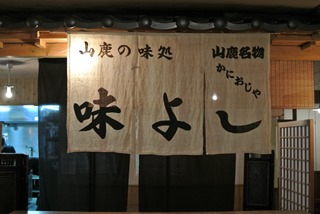 山鹿の味処
山鹿名物
かにおじや
味よし